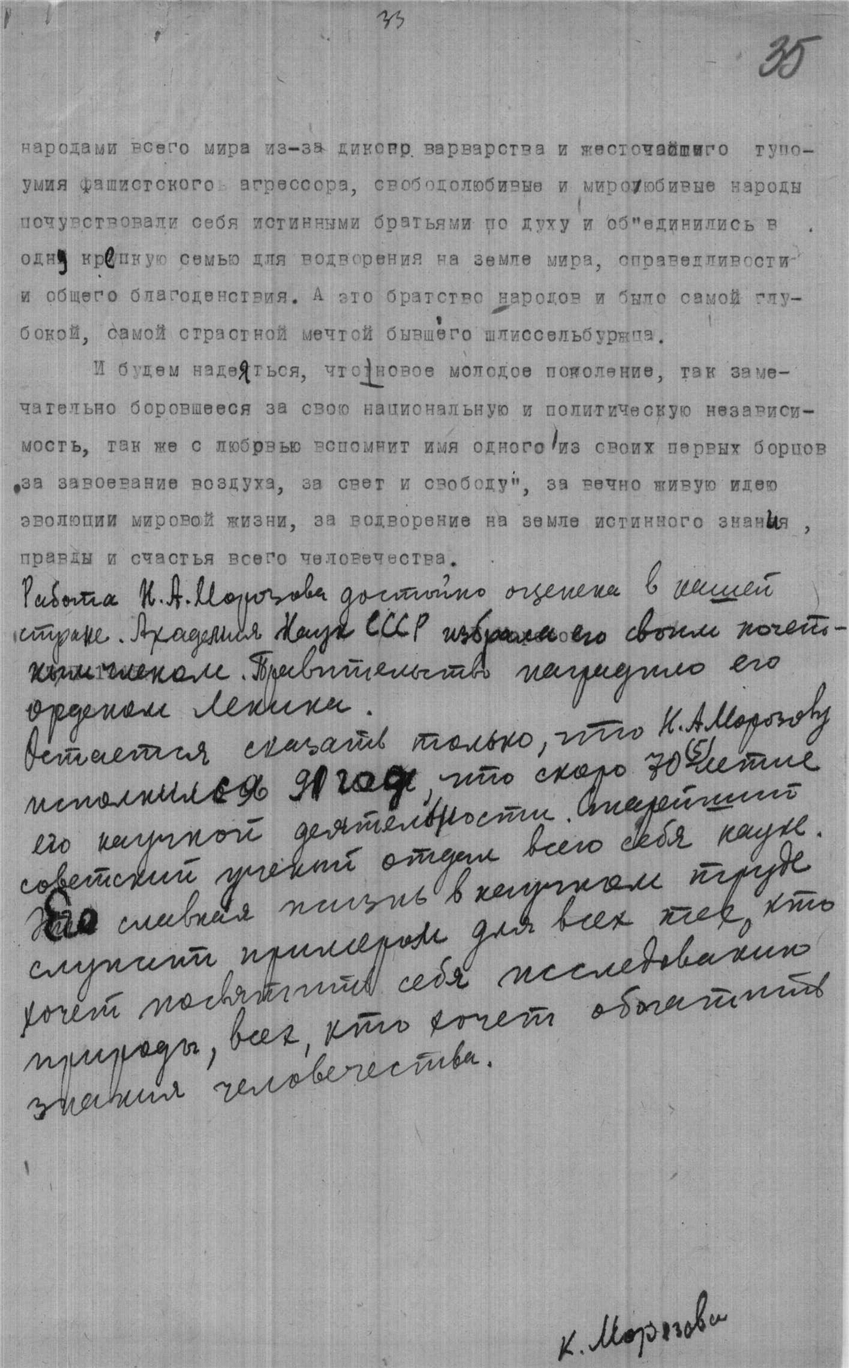 33
35
народами всего мира из-за дикопр варварства и жесточайшиго тупо-
умия фашистского агрессора, свободолюбивые и миролюбивые народы
почувствовали себя истинными братьями по духу и об"единились в
одну крепкую семью для водворения на земле мира, справедливости
и общего благоденствия. А это братство народов и было самой глу-
бокой, самой страстной мечтой бывшего шлиссельбуржца.
И будем надеяться, что новое молодое поколение, так заме-
чательно боровшееся за свою национальную и политическую независи-
мость, так же с любрвью вспомнит имя одного из своих первых борцов
„за завоевание воздуха, за свет и свободу", за вечно живую идею
эволюции мировой жизни, за водворение на земле истинного знания ,
правды и счастья всего человечества.
Работа Н.А.Морозова достойно оценена в нашей
стране. Академия Наук СССР избрала его своим почет-
ным членом. Правительство наградило его
орденом Ленина.
Остается сказать только, что Н.А.Морозову
исполнился 91 год, что скоро 70(5)летие
его научной деятельности. Старейший
советский ученый отдал всего себя науке.
Его славная жизнь в научном труде
служит примером для всех тех, кто
хочет посвятить себя исследованию
природы, всех, кто хочет обогатить
знания человечества.
К. Морозова